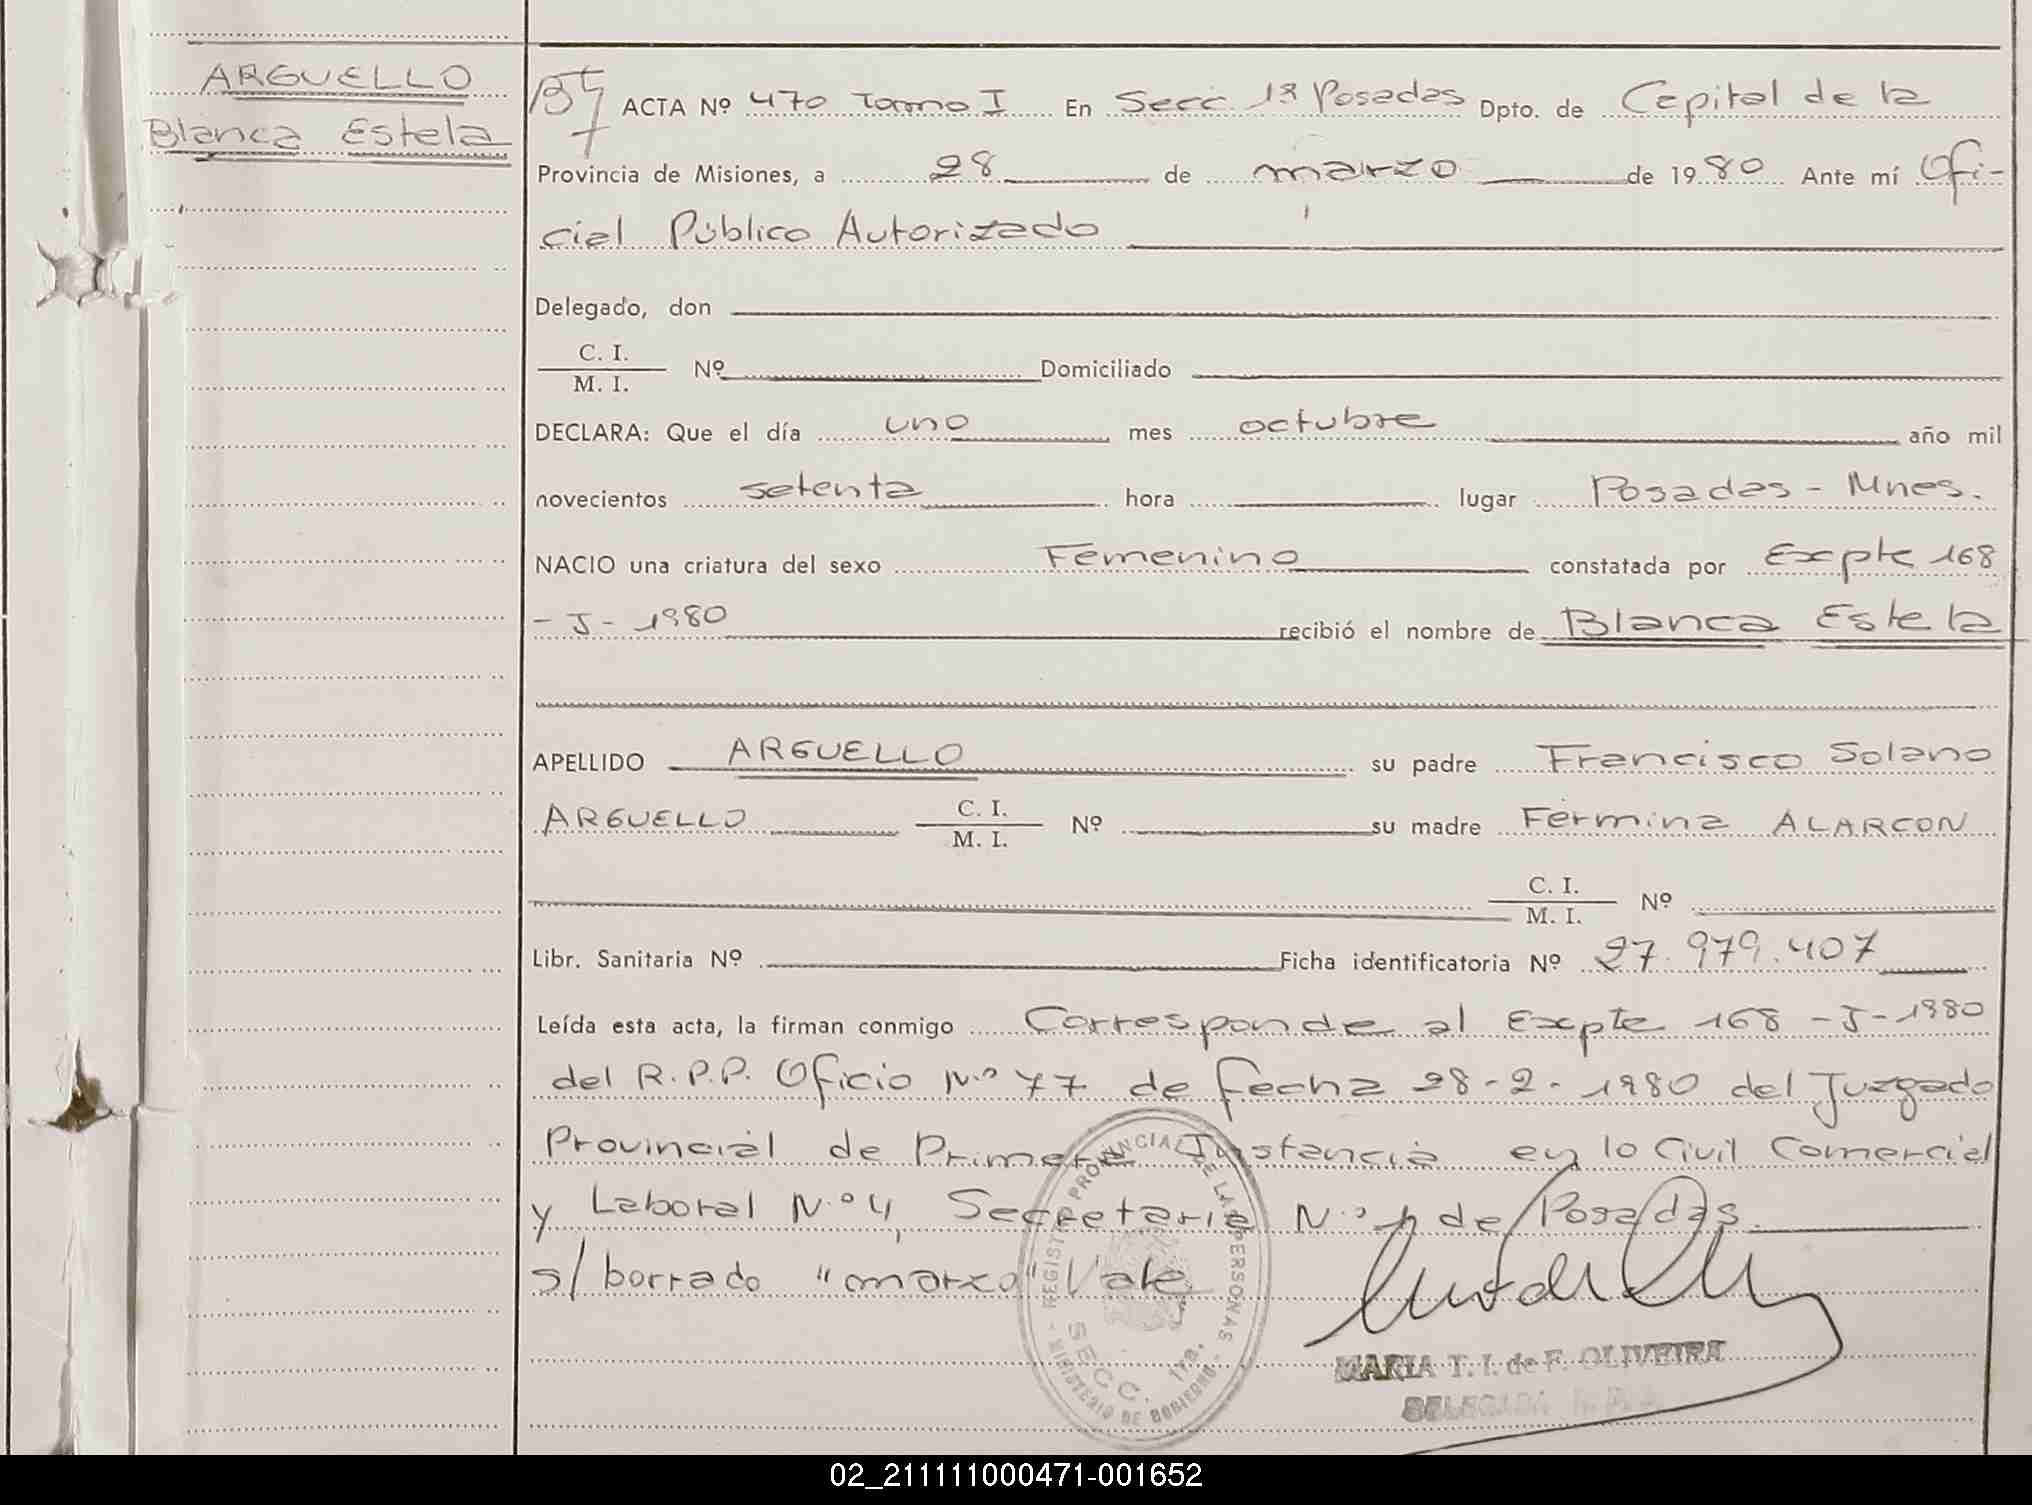 ARGUELLO
Blanca Estela
ACTA Nº 470 Tomo I En Secc 1ª Posadas Dpto. de Capital de la
Provincia de Misiones, a 28 de marzo de 1980 Ante mí Ofi-
cial Público Autorizado
Delegado, don
C. I.
M. I.
Nº Domiciliado
DECLARA: Que el día uno mes octubre año mil
novecientos setenta hora lugar Posadas - Mnes.
NACIO una criatura del sexo Femenino constatada por Expte 168
- J - 1980 recibió el nombre de Blanca Estela
APELLIDO ARGUELLO su padre Francisco Solano
ARGUELLO C. I.
M. I.
Nº su madre Fermina ALARCON
C. I.
M. I.
Nº
Libr. Sanitaria Nº Ficha identificatoria Nº 27.979.407
Leída esta acta, la firman conmigo Corresponde al Expte 168 - J - 1980
del R.P.P. Oficio N.º 77 de fecha 28 - 2 - 1980 del Juzgado
Provincial de Primera Instancia en lo Civil Comercial
y Laboral N.º 4, Secretaria N.º 1 de Posadas.
s/ borrado "marzo" Vale
REGISTRO PROVINCIAL DE LAS PERSONAS
SECC. 1ra.
MINISTERIO DE GOBIERNO
MARIA T. I. de F. OLIVEIRA
DELEGADA
02_211111000471-001652